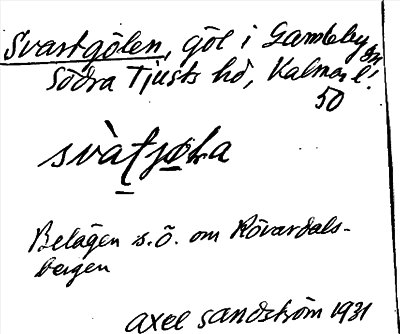 Svartgölen, göl i Gamleby sn
Södra Tjusts hd, Kalmar l.
50
svàt̠jø̠la
Belägen s.ö. om Rövardals-
bergen
Axel Sandström 1931